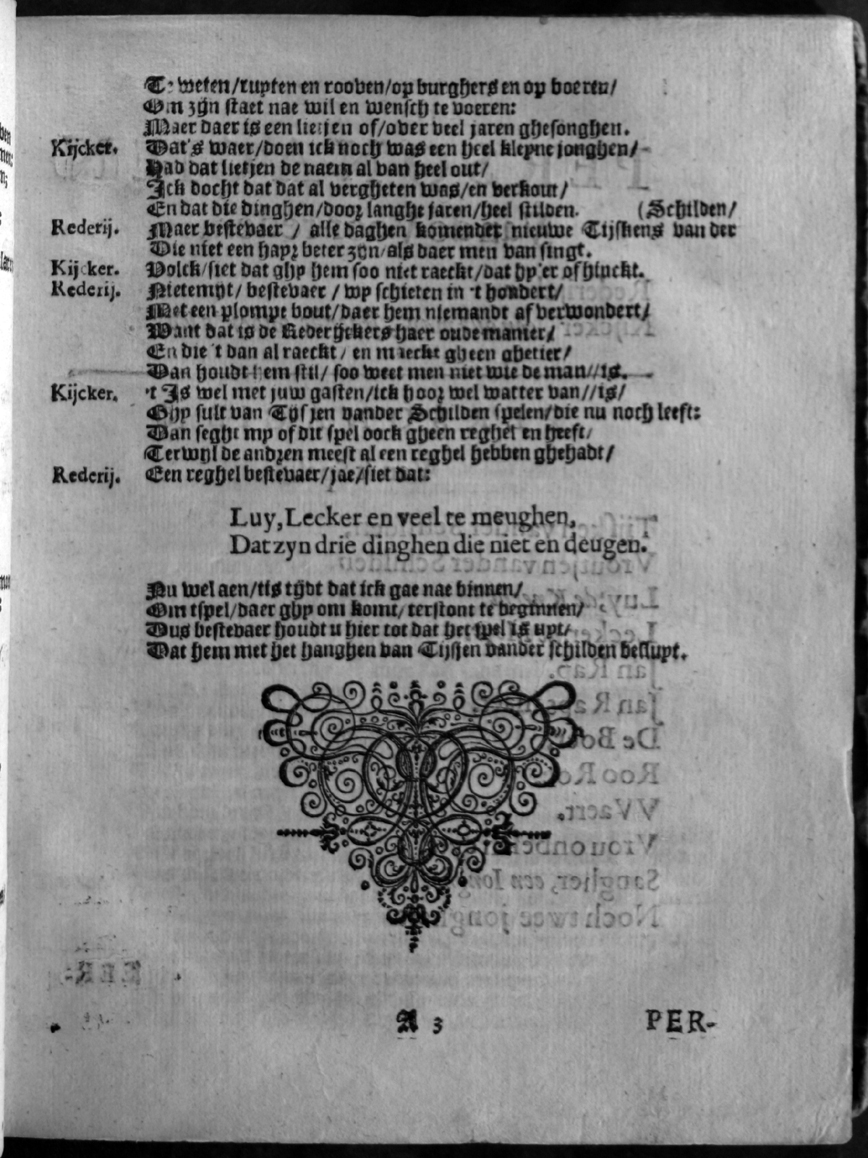 Te weten/ruyten en rooven/op burghers en op boeren/
Om zijn staet nae wil en wensch te voeren:
Maer daer is een lietjen of/over veel jaren ghesonghen.
Kijcker. Dat's waer/doen ick noch was een heel kleyne jonghen/
Had dat lietjen de naem al van heel out/
Ick docht dat dat al vergheten was/en verkout/
En dat die dinghen/door langhe jaren/heel stilden. (Schilden/
Rederij. Maer bestevaer / alle daghen komender nieuwe Tijskens van der
Die niet een hayr beter zijn/als daer men van singt.
Kijcker. Volck/siet dat ghy hem soo niet raeckt/dat hy'er of hinckt.
Rederij. Nietemyt/ bestevaer / wy schieten in 't hondert/
Met een plompe bout/daer hem niemandt af verwondert/
Want dat is de Rederijckers haer oude manier/
En die 't dan al raeckt / en maeckt gheen ghetier/
Dan houdt hem stil/ soo weet men niet wie de man//is.
Kijcker. 't Is wel met juw gasten/ick hoor wel watter van//is/
Ghy sult van Tijsjen vander Schilden spelen/die nu noch leeft:
Dan seght my of dit spel oock gheen reghel en heeft/
Terwijl de andren meest al een reghel hebben ghehadt/
Rederij. Een reghel bestevaer/jae/siet dat:
Luy, Lecker en veel te meughen,
Dat zyn drie dinghen die niet en deugen.
Nu wel aen/tis tijdt dat ick gae nae binnen/
Om tspel/daer ghy om komt/terstont te beginnen/
Dus bestevaer houdt u hier tot dat het spel is uyt/
Dat hem met het hanghen van Tijsjen vander schilden besluyt.
A 3 PER-